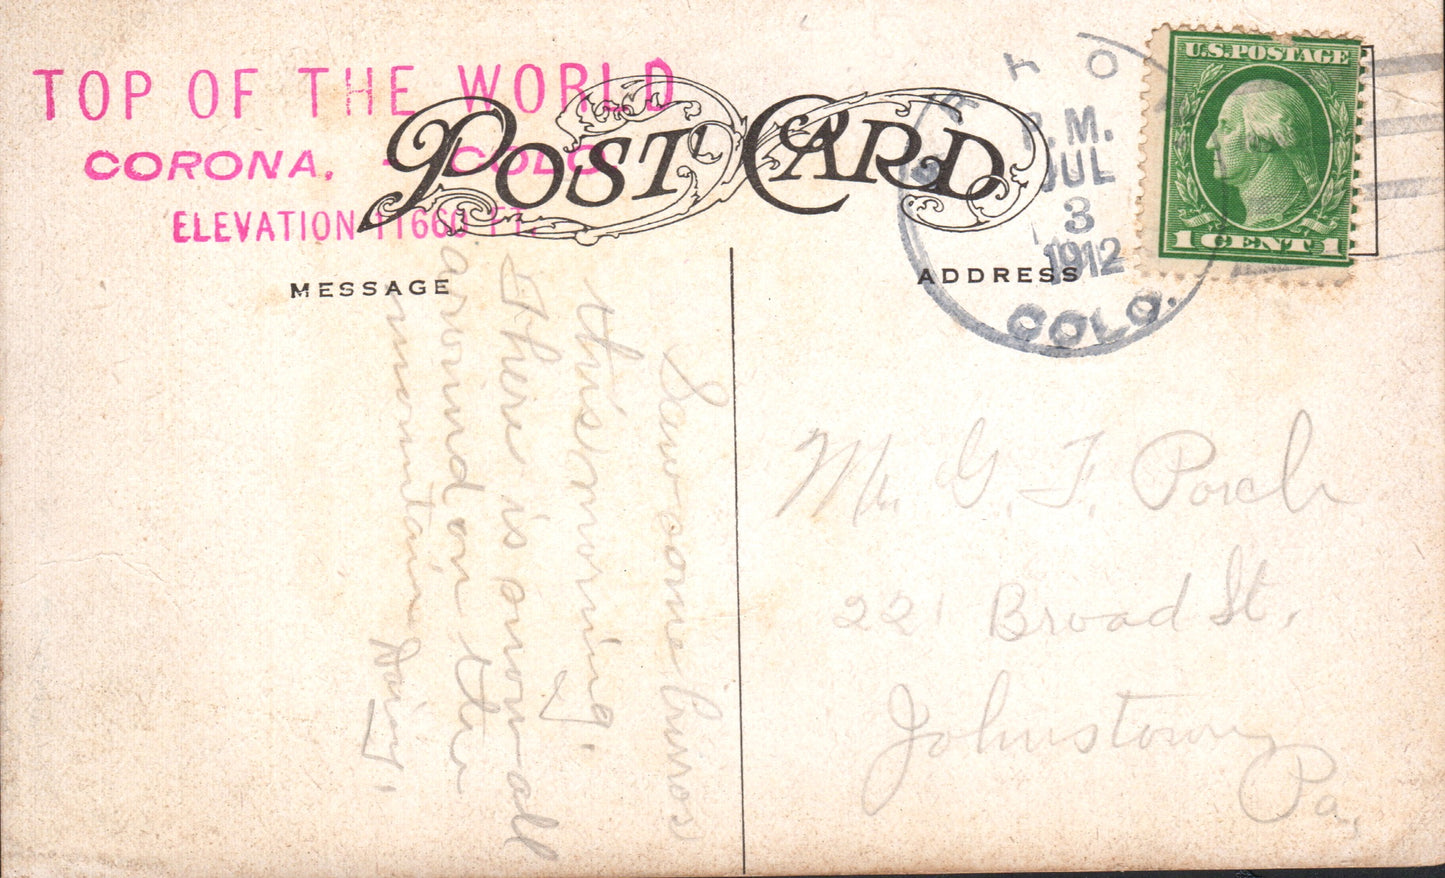 TOP OF THE WORLD
CORONA, - COLO
ELEVATION 11660 FT.
POST CARD
MESSAGE
ADDRESS
U.S. POSTAGE
1 CENT 1
P.M.
JUL
3
1912
COLO.
Saw some
this morning.
There is snow all
around on the
mountain
Daisy.
Mr. G. F. Porch
221 Broad St.
Johnstown
Pa.